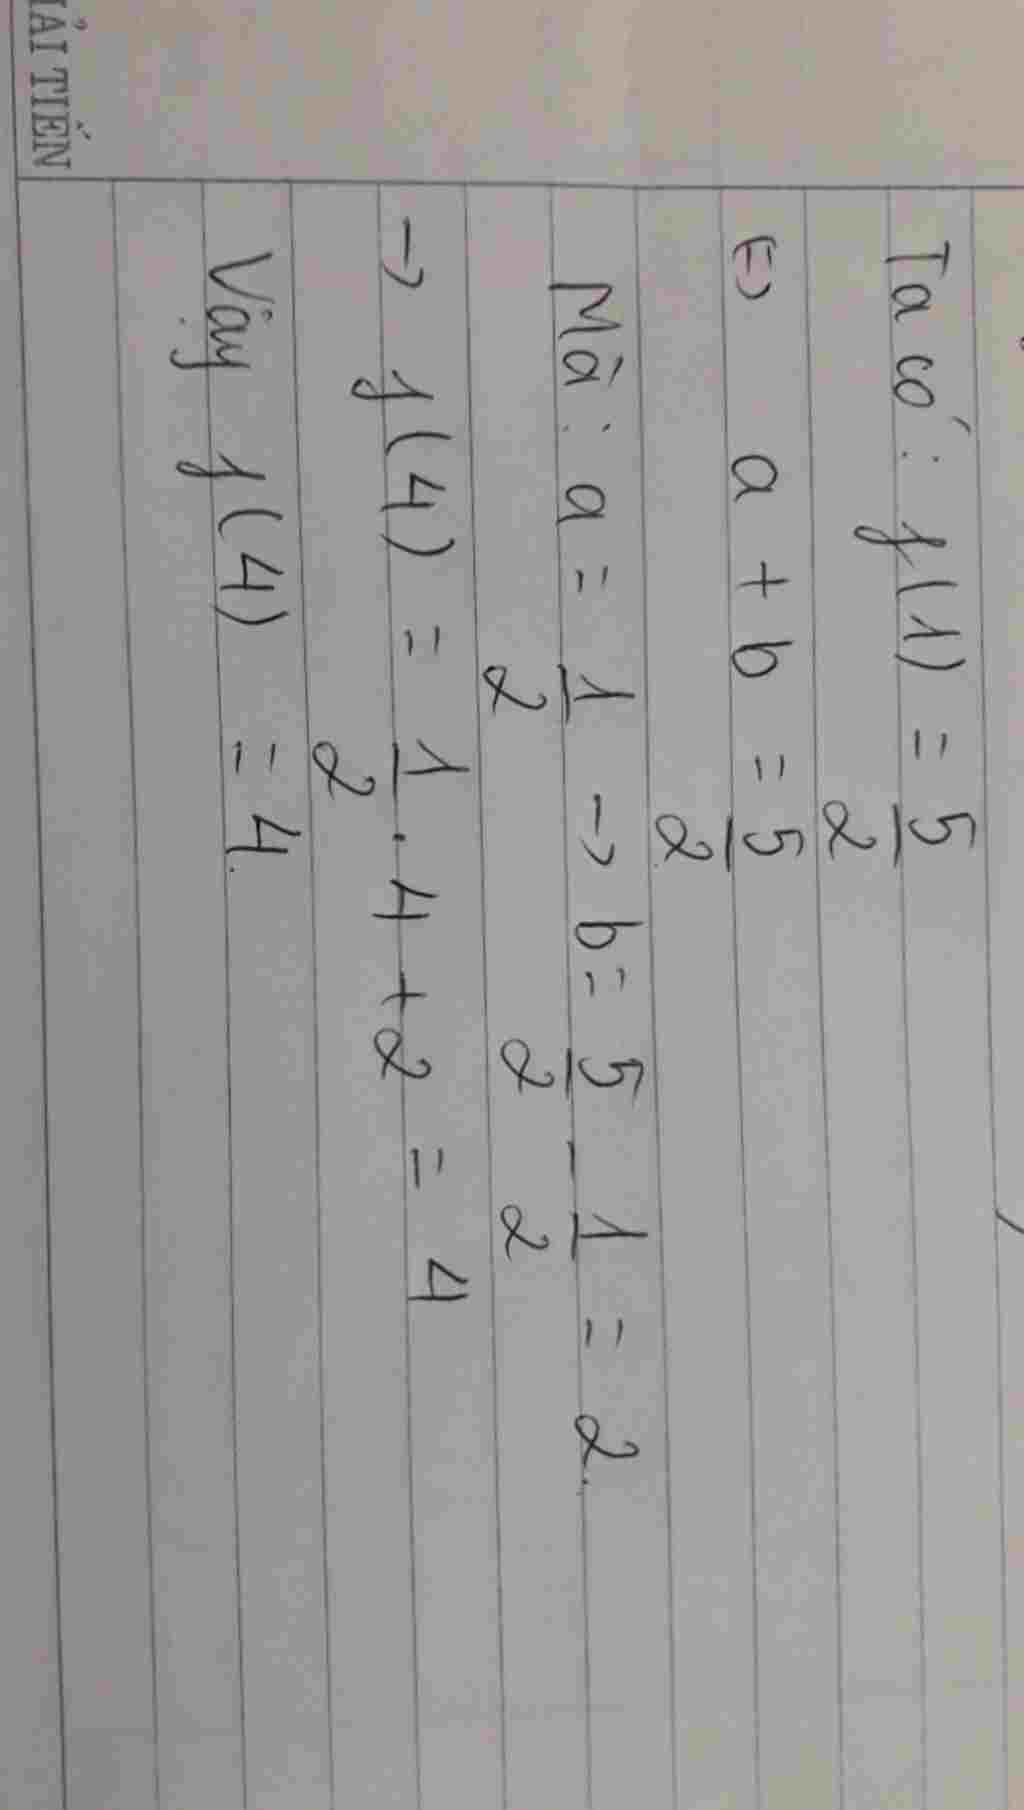 ẢI TIẾN
Ta có: f(1) = 5/2
<=> a + b = 5/2
Mà: a = 1/2 → b = 5/2 - 1/2 = 2.
→ f(4) = 1/2 . 4 + 2 = 4
Vậy f(4) = 4.